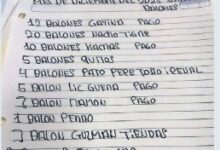 MES DE DICIEMBRE DEL 2023
BALONES
12 BALONES GAVINA PAGO
20 BALONES NACHO TIGRE
20 BALONES KACHAS PAGO
5 BALONES QUITAS
4 BALONES PATO PEPE TORO
5 BALON LIC GUERA PAGO
2 BALON MAMON PAGO
1 BALON PERRO
2 BALON GUZMAN TIENDAS